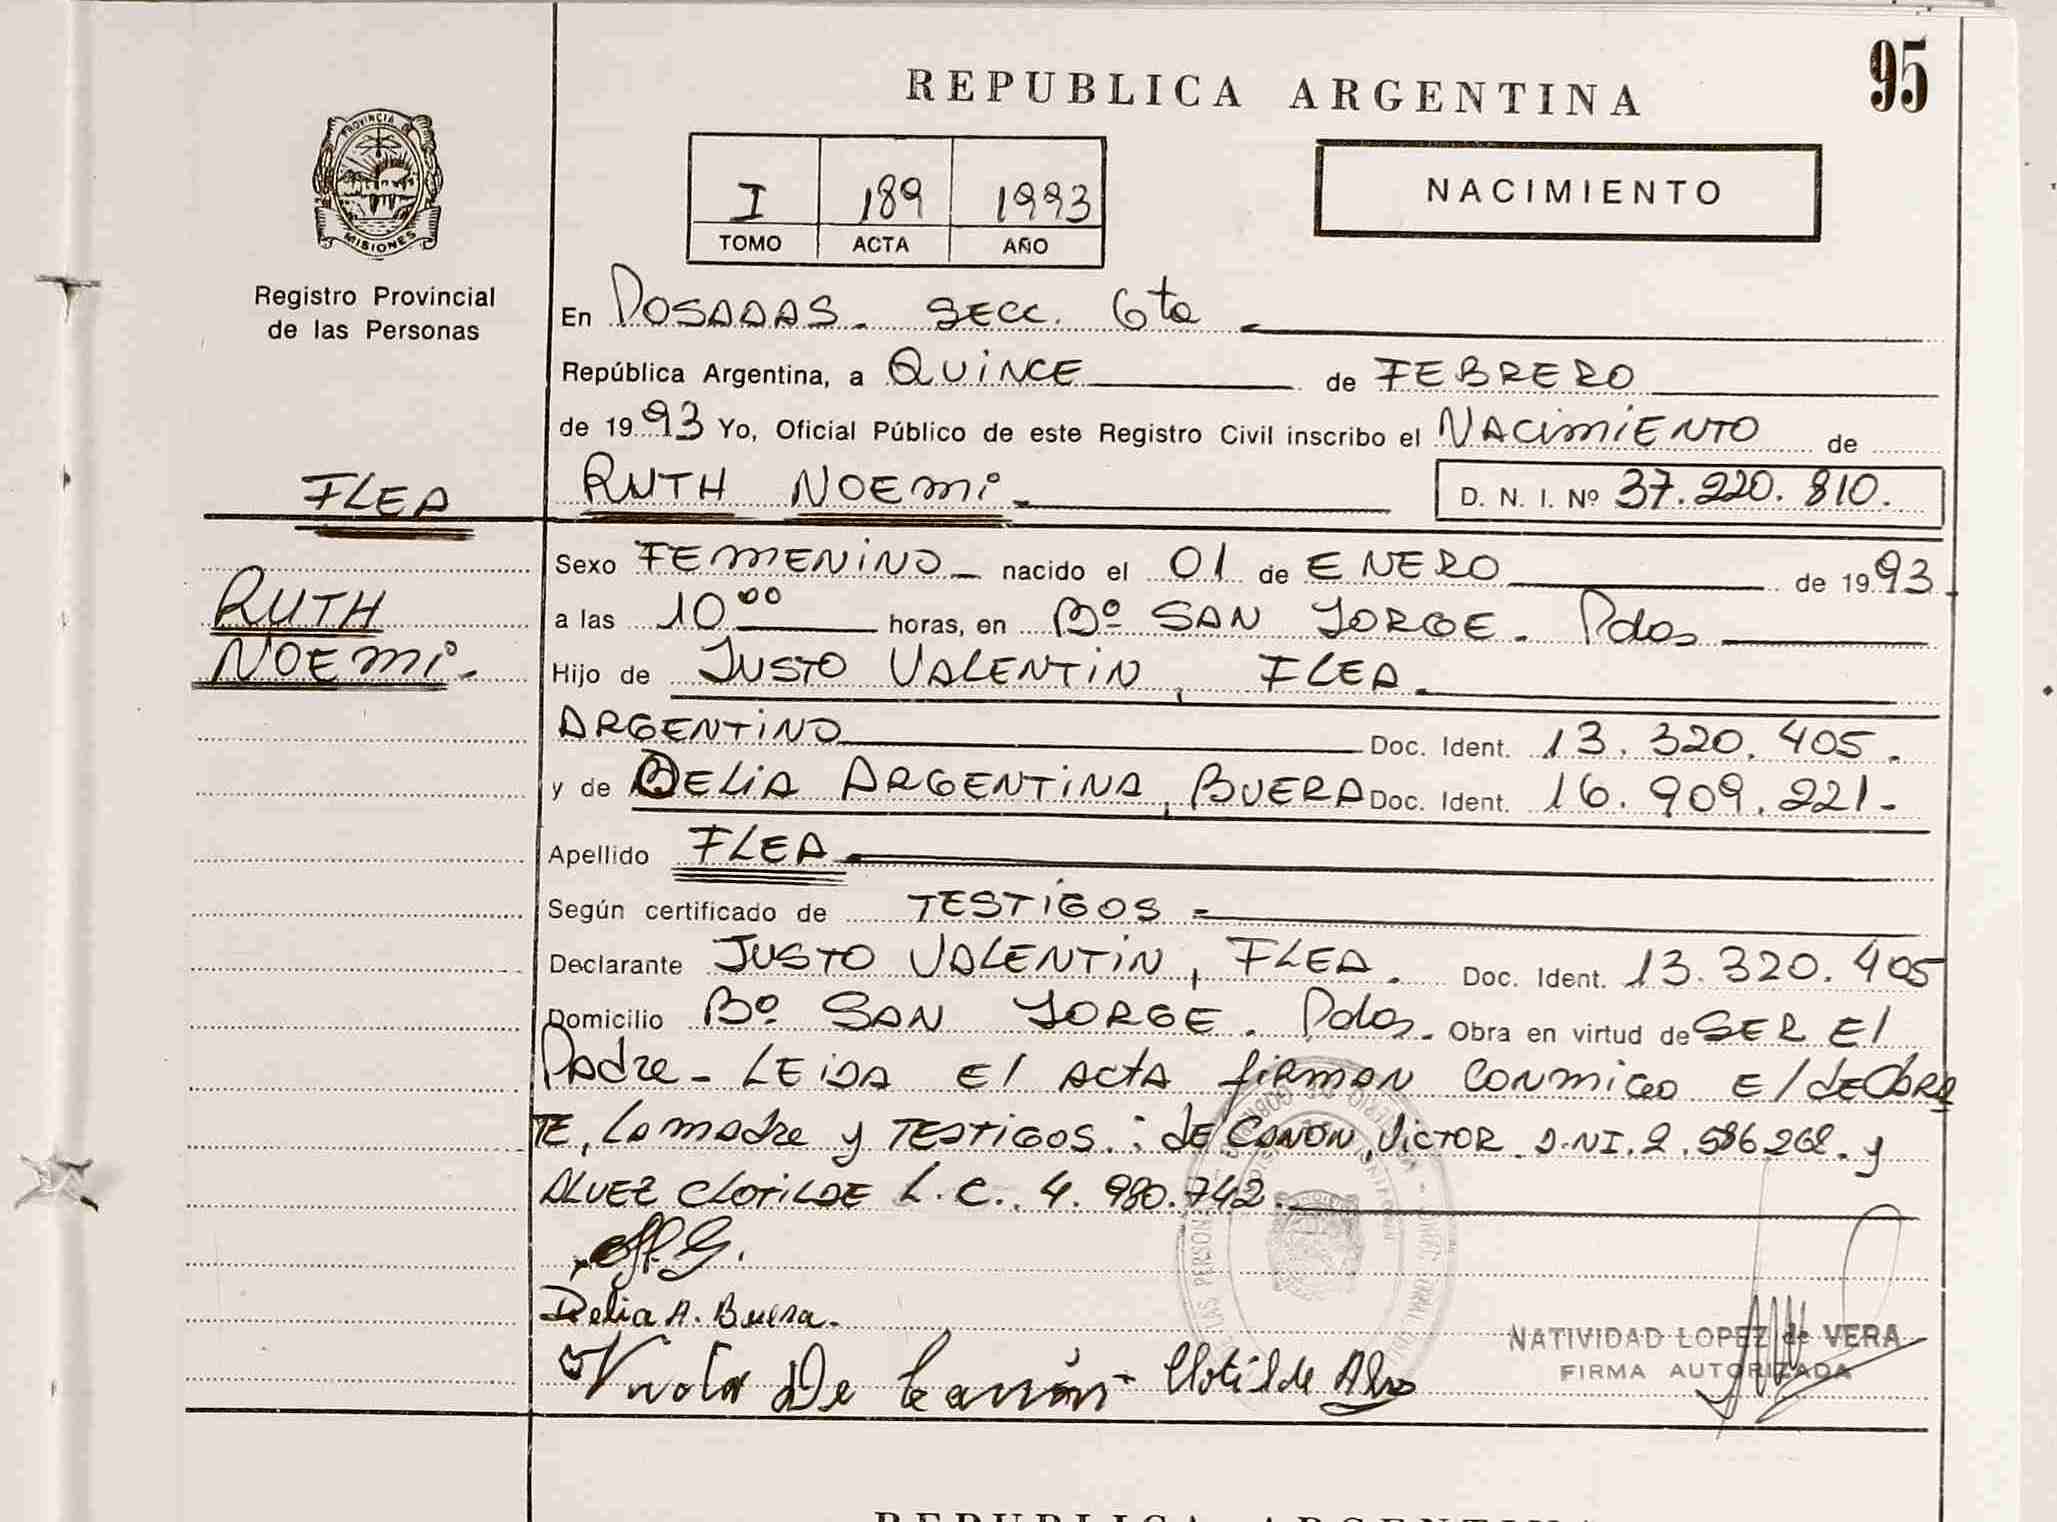 95
REPUBLICA ARGENTINA
PROVINCIA DE
MISIONES
Registro Provincial
de las Personas
I 189 1993
TOMO ACTA AÑO
NACIMIENTO
En POSADAS. SECC. 6ta
República Argentina, a QUINCE de FEBRERO
de 1993 Yo, Oficial Público de este Registro Civil inscribo el NACIMIENTO de
FLEA
RUTH NOEMI.
D. N. I. Nº 37.220.810.
RUTH
NOEMI.-
Sexo FEMENINO nacido el 01 de ENERO de 1993
a las 10⁰⁰ horas, en Bº SAN JORGE. Pdas
Hijo de JUSTO VALENTIN, FLEA.
ARGENTINO Doc. Ident. 13.320.405.
y de DELIA ARGENTINA, BUERA Doc. Ident. 16.909.221-
Apellido FLEA
Según certificado de TESTIGOS
Declarante JUSTO VALENTIN, FLEA. Doc. Ident. 13.320.405
Domicilio Bº SAN JORGE. Pdas. Obra en virtud de SER El
Padre - LEIDA El ACTA firman CONMIGO El declaran
TE, La madre y TESTIGOS: de CANON, VICTOR D.NI.2.586.268. y
ALVEZ CLOTILDE L.C. 4.980.742.
Delia A. Buera.
De Clotilde
NATIVIDAD LOPEZ de VERA
FIRMA AUTORIZADA
REPUBLICA ARGENTINA